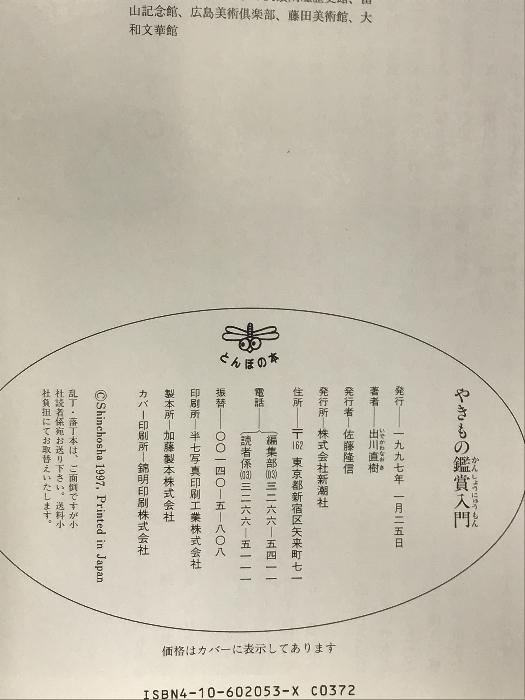 山記念館、広島美術倶楽部、藤田美術館、大
和文華館
とんぼの本
やきもの鑑賞入門
かんしょうにゅうもん
発行──一九九七年 一月二五日
著者──出川直樹
いでがわなおき
発行者─佐藤隆信
発行所─株式会社新潮社
住所──〒162 東京都新宿区矢来町七一
電話──編集部(03)三二六六─五四一一
読者係(03)三二六六─五一一一
振替──〇〇一四〇─五─八〇八
印刷所─半七写真印刷工業株式会社
製本所─加藤製本株式会社
カバー印刷所─錦明印刷株式会社
©Shinchosha 1997, Printed in Japan
乱丁・落丁本は、ご面倒ですが小
社読者係宛お送り下さい。送料小
社負担にてお取替えいたします。
価格はカバーに表示してあります
ISBN4-10-602053-X C0372